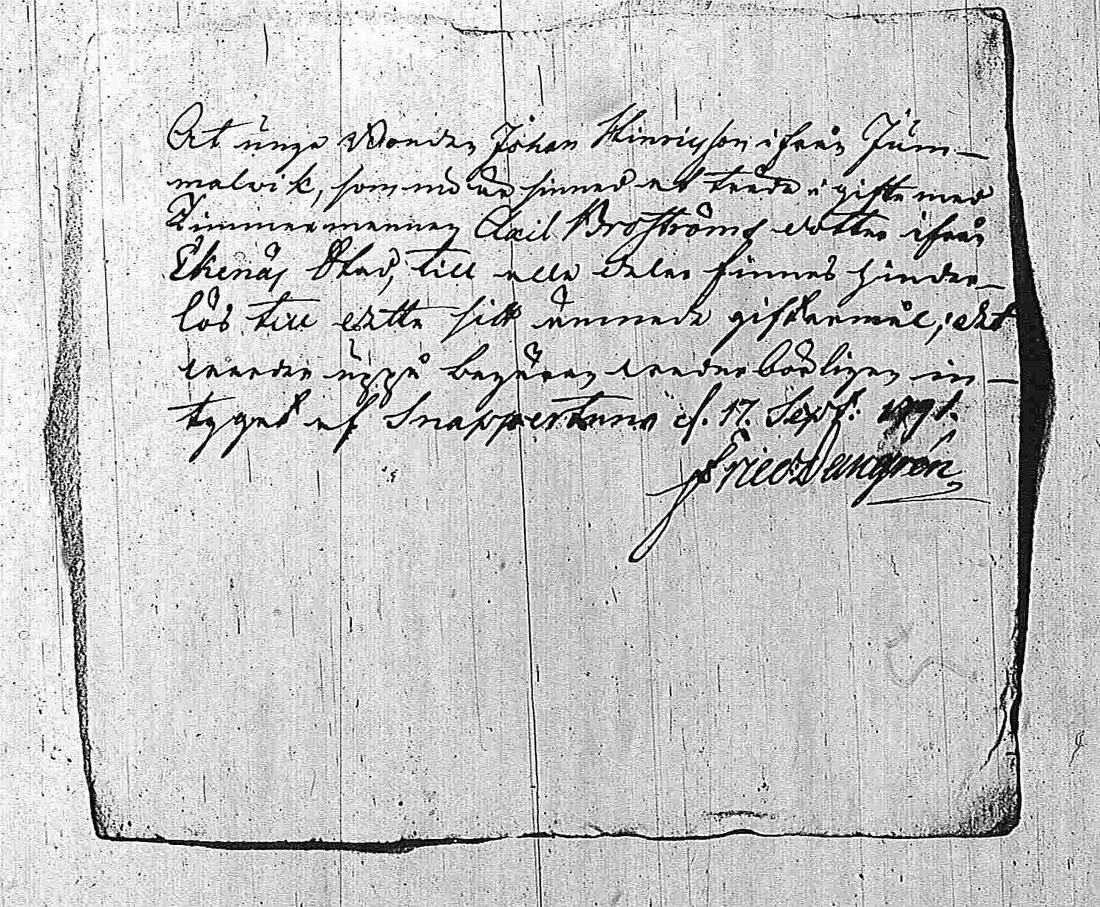 At unge Bonden Johan Hinricsson ifrån Jum-
malvik, som nu är sinnad at träda i gifte med
Timmermannen Axil Broströms dotter ifrån
Ekenäs Stad, till alla delar finnes hinder-
lös till detta sitt ämnade giftermål; det
varder uppå begäran vederbörligen in-
tygat af Snappertuna d. 17. Sept: